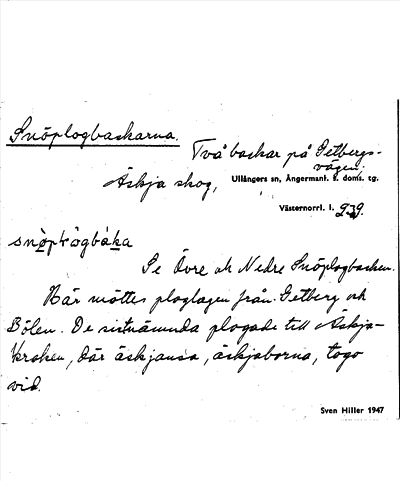 Snöplogbackarna.
Två backar på Getbergs-
vägen,
Äskja skog,
Ullångers sn, Ångermanl. s. doms. tg.
Västernorrl. l. 939.
Se Övre och Nedre Snöplogbacken.
Här möttes ploglagen från Getberg och
Bölen. De sistnämnda plogade till Äskja-
kroken, där äskjansa, äskjaborna, togo
vid.
Sven Hiller 1947